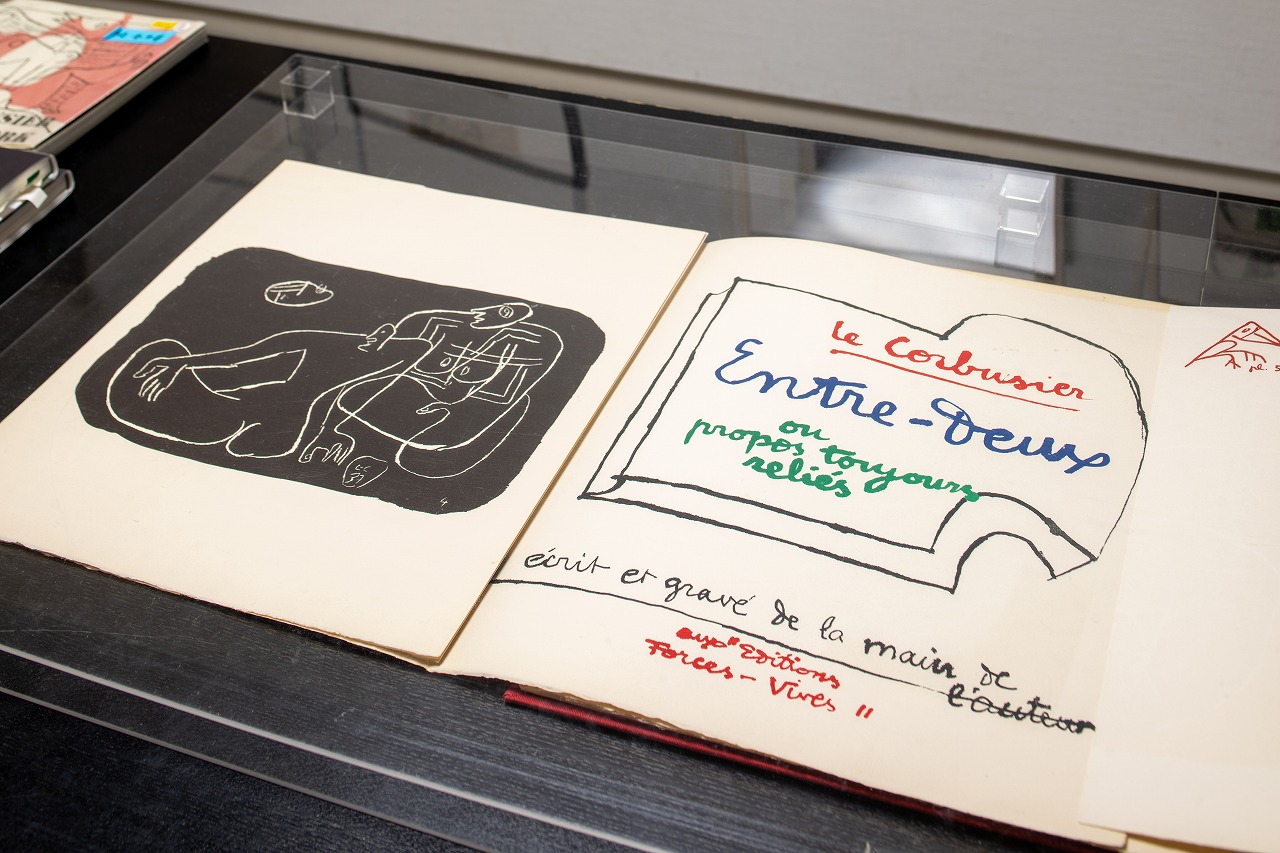 SIER
le Corbusier
Entre-Deux
ou
propos toujours
reliés
écrit et gravé de la main de
l'auteur
aux "Editions
Forces-Vives"